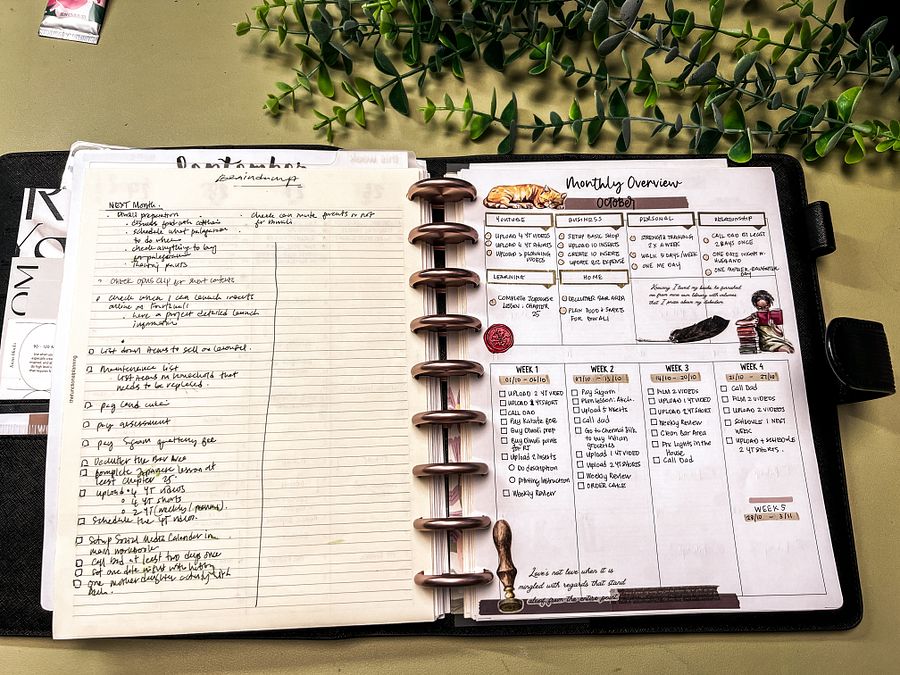 September
Braindump
NEXT MONTH.
Diwali preparation
schedule what
to do when
check anything to buy
check can invite parents or not
for Diwali
check opus clip for short contents
check when I can launch
have a project detailed launch
List down items to sell on
Maintenance list
List items in household that
needs to be replaced.
pay card
pay assessment
pay
fee
Declutter the Bar Area
complete Japanese lesson at
least chapter 25.
upload 4 YT videos
4 YT shorts
Schedule the YT video.
Setup Social Media Calendar in
main notebook
call Dad at least two days once
Set one date night with hubby
one mother daughter activity with
Monthly Overview
October
YOUTUBE
UPLOAD 4 YT VIDEOS
UPLOAD 4 YT SHORTS
UPLOAD 2 PLANNING
VIDEOS
BUSINESS
SETUP BASIC SHOP
UPLOAD 10 INSERTS
CREATE 10 INSERTS
UPDATE BIZ EXPENSE
PERSONAL
STRENGTH TRAINING
2X A WEEK
WALK 5 DAYS/WEEK
ONE ME DAY
RELATIONSHIP
CALL DAD AT LEAST
2 DAYS ONCE
ONE DATE NIGHT W
HUSBAND
ONE MOTHER-DAUGHTER
DAY
LEARNING
COMPLETE JAPANESE
LESSON, CHAPTER
25
HOME
DECLUTTER BAR AREA
PLAN FOOD & SNACKS
FOR DIWALI
Knowing I loved my books, he furnished
me from mine own library with volumes
that I prize above my dukedom
WEEK 1
01/10 - 06/10
UPLOAD 2 YT VIDEO
UPLOAD 1 YT SHORT
CALL DAD
Pay Karate Fee
Buy Diwali prep
Buy Diwali pants
for RT
Upload 2 Inserts
Do description
Printing Instruction
Weekly Review
WEEK 2
07/10 - 13/10
Pay
Plan lesson:
Upload 5 Inserts
Call dad
Go to Chennai Silk
to buy Indian
groceries
Upload 1 YT VIDEO
UPLOAD 2 YT SHORTS
Weekly Review
ORDER CAKES
WEEK 3
14/10 - 20/10
FILM 2 VIDEOS
UPLOAD 1 YT VIDEO
UPLOAD 1 YT SHORT
Weekly Review
Clean Bar Area
Put Lights in the
House
Call Dad
WEEK 4
21/10 - 27/10
Call Dad
FILM 2 VIDEOS
UPLOAD 2 VIDEOS
SCHEDULE 1 NEXT
WEEK
UPLOAD & SCHEDULE
2 YT SHORTS.
WEEK 5
28/10 - 3/11
Love's not love when it is
mingled with regards that stand
aloof from the entire point